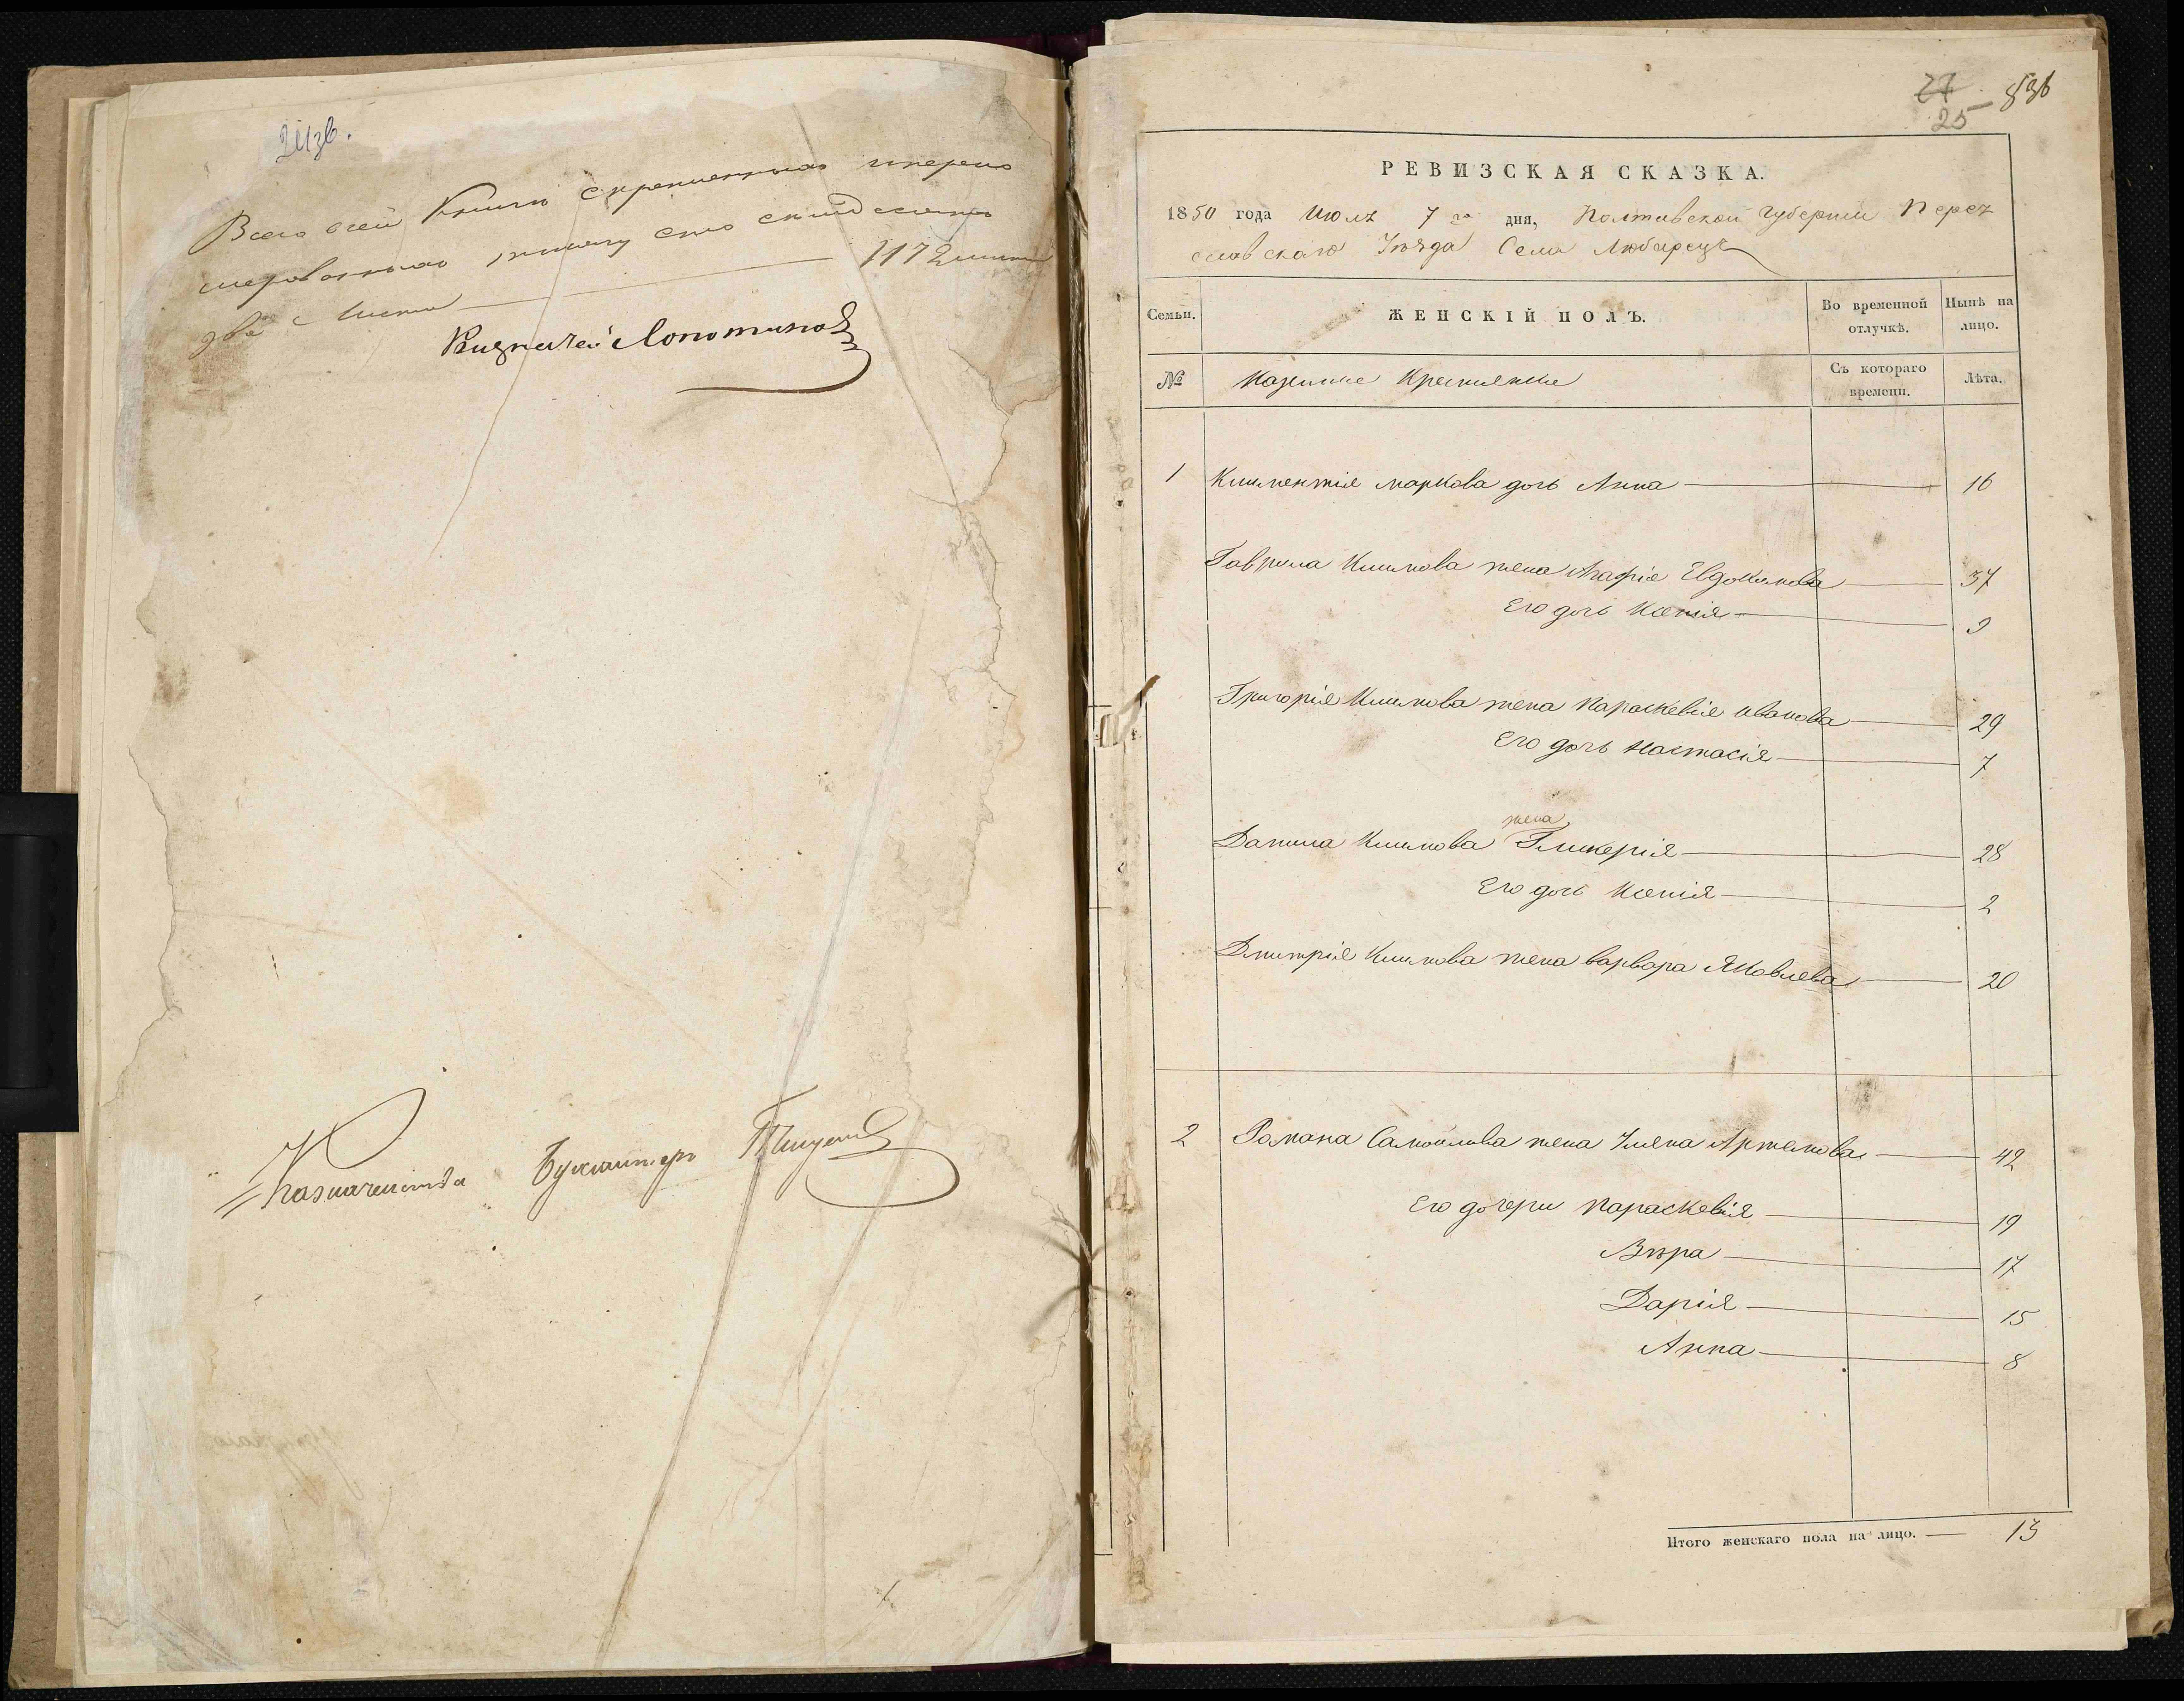 24зв.
Всего въ сей Книги скрепленныхъ и перено
мерованныхъ тысячу сто семдесятъ
два листа 1172 листа
Казначей Лопатинъ
Казначейства Бухгалтеръ
27
25 536
РЕВИЗСКАЯ СКАЗКА.
1850 года Июля 7го дня, Полтавской Губернии Перея
славскаго Уѣзда Села Любарецъ
Семьи. ЖЕНСКІЙ ПОЛЪ. Во временной отлучкѣ. Нынѣ на лицо.
№ Казенные Крестьянки Съ котораго времени. Лѣта.
1 Климентія Маркова дочь Анна 16
Гаврила Климова жена Агафія Евдокимова 37
Его дочь Ксенія 9
Григорія Климова жена Параскевія Иванова 29
Его дочь Настасія 7
жена
Данила Климова Гликерія 28
Его дочь Ксенія 2
Дмитрія Климова жена Варвара Яковлева 20
2 Романа Самойлова жена Уляна Артемова 42
Его дочери Параскевія 19
Вѣра 17
Дарія 15
Анна 8
Итого женскаго пола на лицо. 13